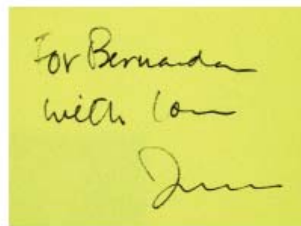 For Bernarda
with love